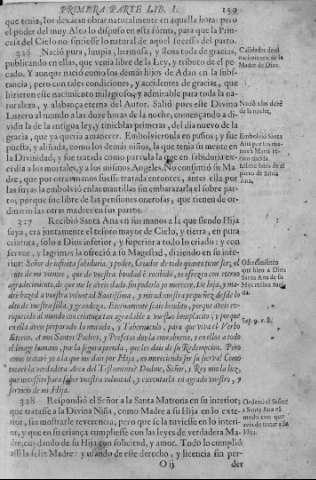 PRIMERA PARTE LIB. I. 159
que tenia, los dexaran obrar naturalmente en aquella hora: pero
el poder del muy Alto lo dispuso en esta forma, para que la Prin-
cesa del Cielo no sintiesse lo natural de aquel
326 Nació pura, limpia, hermosa, y llena toda de gracias,
publicando en ellas, que venia libre de la Ley, y tributo de el pe-
cado. Y aunque nació como los demás hijos de Adan en la subs-
tancia, pero con tales condiciones, y accidentes de gracias, que
hizieron este nacimiento milagroso, y admirable para toda la na-
turaleza, y alabança eterna del Autor. Salió pues este Divino
Luzero al mundo a las doze horas de la noche, començando a di-
vidir la de la antigua ley, y tinieblas primeras, del dia nuevo de la
gracia, que ya queria amanecer. Embolvieronla en paños, y fue
puesta, y aliñada, como los demás niños, la que tenia su mente en
la Divinidad, y fue tratada como parvula la que en Sabiduria ex-
cedia a los mortales, y a los mismos Angeles. No consintió su Ma-
dre, que por otras manos fuesse tratada entonces, antes ella por
las suyas la embolvió en las mantillas sin embaraçarla el sobre par-
to, porque fue libre de las pensiones onerosas, que tienen de or-
dinario las otras madres en sus partos.
327 Recibió Santa Ana en sus manos a la que siendo Hija
suya, era juntamente el tesoro mayor de Cielo, y tierra, en pura
criatura, solo a Dios inferior, y superior a todo lo criado: y con
fervor, y lagrimas la ofreció a su Magestad, diziendo en su inte-
rior: Señor de infinita sabiduria, y poder, Criador de todo quanto tiene ser, el
fruto de mi vientre, que de vuestra bondad è recibido, os ofrezco con eterno
agradecimiento, de que me le aveis dado sin poderlo yo merecer. En hija, y ma-
dre hazed a vuestra voluntad Santissima, y mirad nuestra pequeñez desde lo
alto de vuestra silla, y grandeza. Eternamente seais bendito, porque aveis en-
riquecido al mundo con criatura tan agradable a vuestro beneplacito, y porque
en ella aveis preparado la morada, y Tabernaculo, para que viva el Verbo
Eterno. A mis Santos Padres, y Profetas doy la enorabuena, y en ellos a todo
el linage humano, por la segura prenda, que les dais de su Redempcion. Pero
como tratarè yo a la que me dais por Hija, no mereciendo ser su sierva? Como
tocarè la verdadera Arca del Testamento? Dadme, Señor, y Rey mio la luz,
que necessito para saber vuestra voluntad, y executarla en agrado vuestro, y
servicio de mi Hija.
328 Respondió el Señor a la Santa Matrona en su interior,
que tratasse a la Divina Niña, como Madre a su Hija en lo exte-
rior, sin mostrarle reverencia; pero que se la tuviesse en lo interi-
or, y que en su criança cumpliesse con las leyes de verdadera Ma-
dre, cuidando de su Hija con solicitud, y amor. Todo lo cumplió
assi la feliz Madre: y usando de este derecho, y licencia sin per-
O ij der
Calidades de el
nacimiento de la
Madre de Dios.
Nació a las doze
de la noche.
Embolvió Santa
Ana por sus ma-
nos a Maria re-
cien nacida.
Sap. 9. v. 8.
Ordena el Señor
a Santa Ana el
modo con que
avia de tratar a su
Hija.